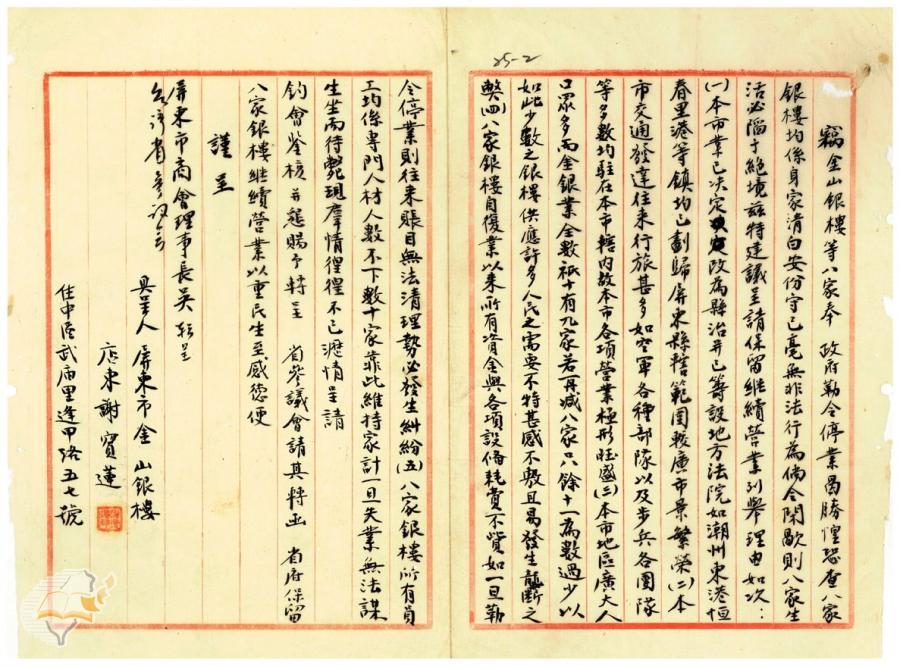 25-2
竊金山銀樓等八家奉 政府勒令停業曷勝惶恐查八家
銀樓均係身家清白安份守己毫無非法行為倘令閉歇則八家生
活必陷于絕境茲特建議呈請保留繼續營業列舉理由如次：
(一)本市業已決定改為縣治并已籌設地方法院如潮州東港恒
春里港等鎮均已劃歸屏東縣轄範圍較廣市景繁榮(二)本
市交通發達往來行旅甚多如空軍各種部隊以及步兵各團隊
等多數均駐在本市轄內故本市各項營業極形旺盛(三)本市地區廣大人
口眾多而金銀業全數祇十有九家若再減八家只餘十一為數過少以
如此少數之銀樓供應許多人民之需要不特甚感不敷且易發生壟斷之
弊(四)八家銀樓自復業以來所有資金與各項設備耗費不貲如一旦勒
令停業則往來賬目無法清理勢必發生糾紛(五)八家銀樓所有員
工均係專門人材人數不下數十家靠此維持家計一旦失業無法謀
生坐而待斃現羣情徨徨不已瀝情呈請
鈞會鉴核并懇賜予轉呈 省參議會請其轉函 省府保留
八家銀樓繼續營業以重民生至感德便
謹呈
屏東市商會理事長吳轉呈
台灣省參議會
具呈人 屏東市金山銀樓
店東謝寶蓮
住中區武廟里逢甲路五七號